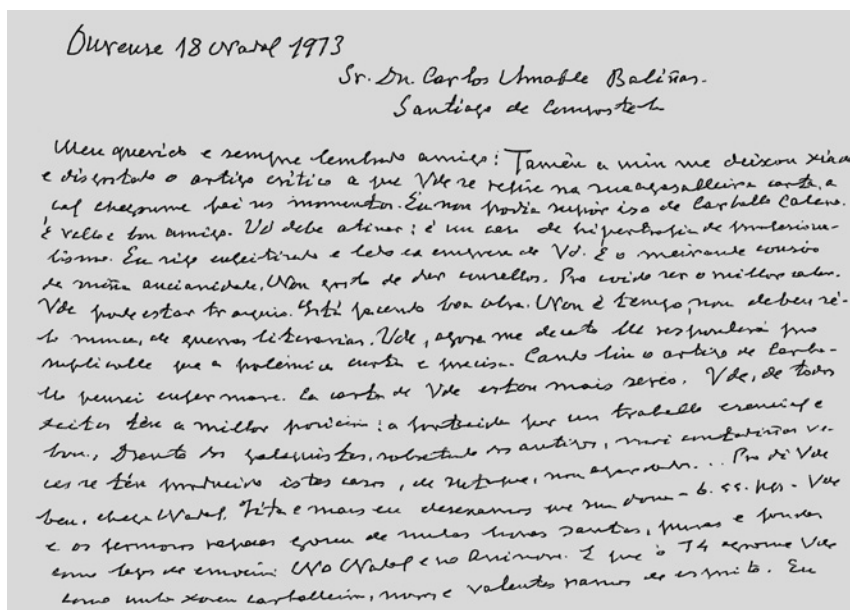 Ourense 18 Nadal 1973
Sr. Dn. Carlos Amable Baliñas.
Santiago de Compostela
Meu querido e sempre lembrado amigo: Tamén a min me deixou
e disgustado o artigo crítico a que Vde se refire na sua agasalleira carta, a
cal chegoume fai uns momentos. Eu non podía supór iso de Carballo Calero.
É vello e bon amigo. Vd debe atinar: é un caso de hipertrofia de profesiona-
lismo. Eu sigo e ledo ca empresa de Vd. É o meirande consó
da miña ancianidade. Non gosto de dar consellos. Pro coido ser o millor calar.
Vde pode estar tranquío. Está facendo boa obra. Non é tempo, non debeu sé-
lo nunca, de guerras literarias. Vde, agora me decato lle responderá pro
suplícolle que a polémica curta e precisa. Cando lin o artigo de Carba-
llo pensei enfermare. Ca carta de Vde estou mais sereo. Vde, de todos
xeitos tén a millor posición: a por un traballo esencial e
bon. Drento dos galeguistas, sobretodo os antigos, moi contadiñas ve-
ces se tén producido istos casos, de non agardado... Pro dí Vde
ben, chega Nadal. Fita e mais eu desexamos que sua dona - b. ss. pp. - Vde
e os fermosos rapaces gocen de moitas horas santas, puras e fondas
como lagos de emoción No Nadal e no Aninovo. E que o 74 agrome Vde
como unha xoven carballeira, novos e valentes ramos de esprito. Eu